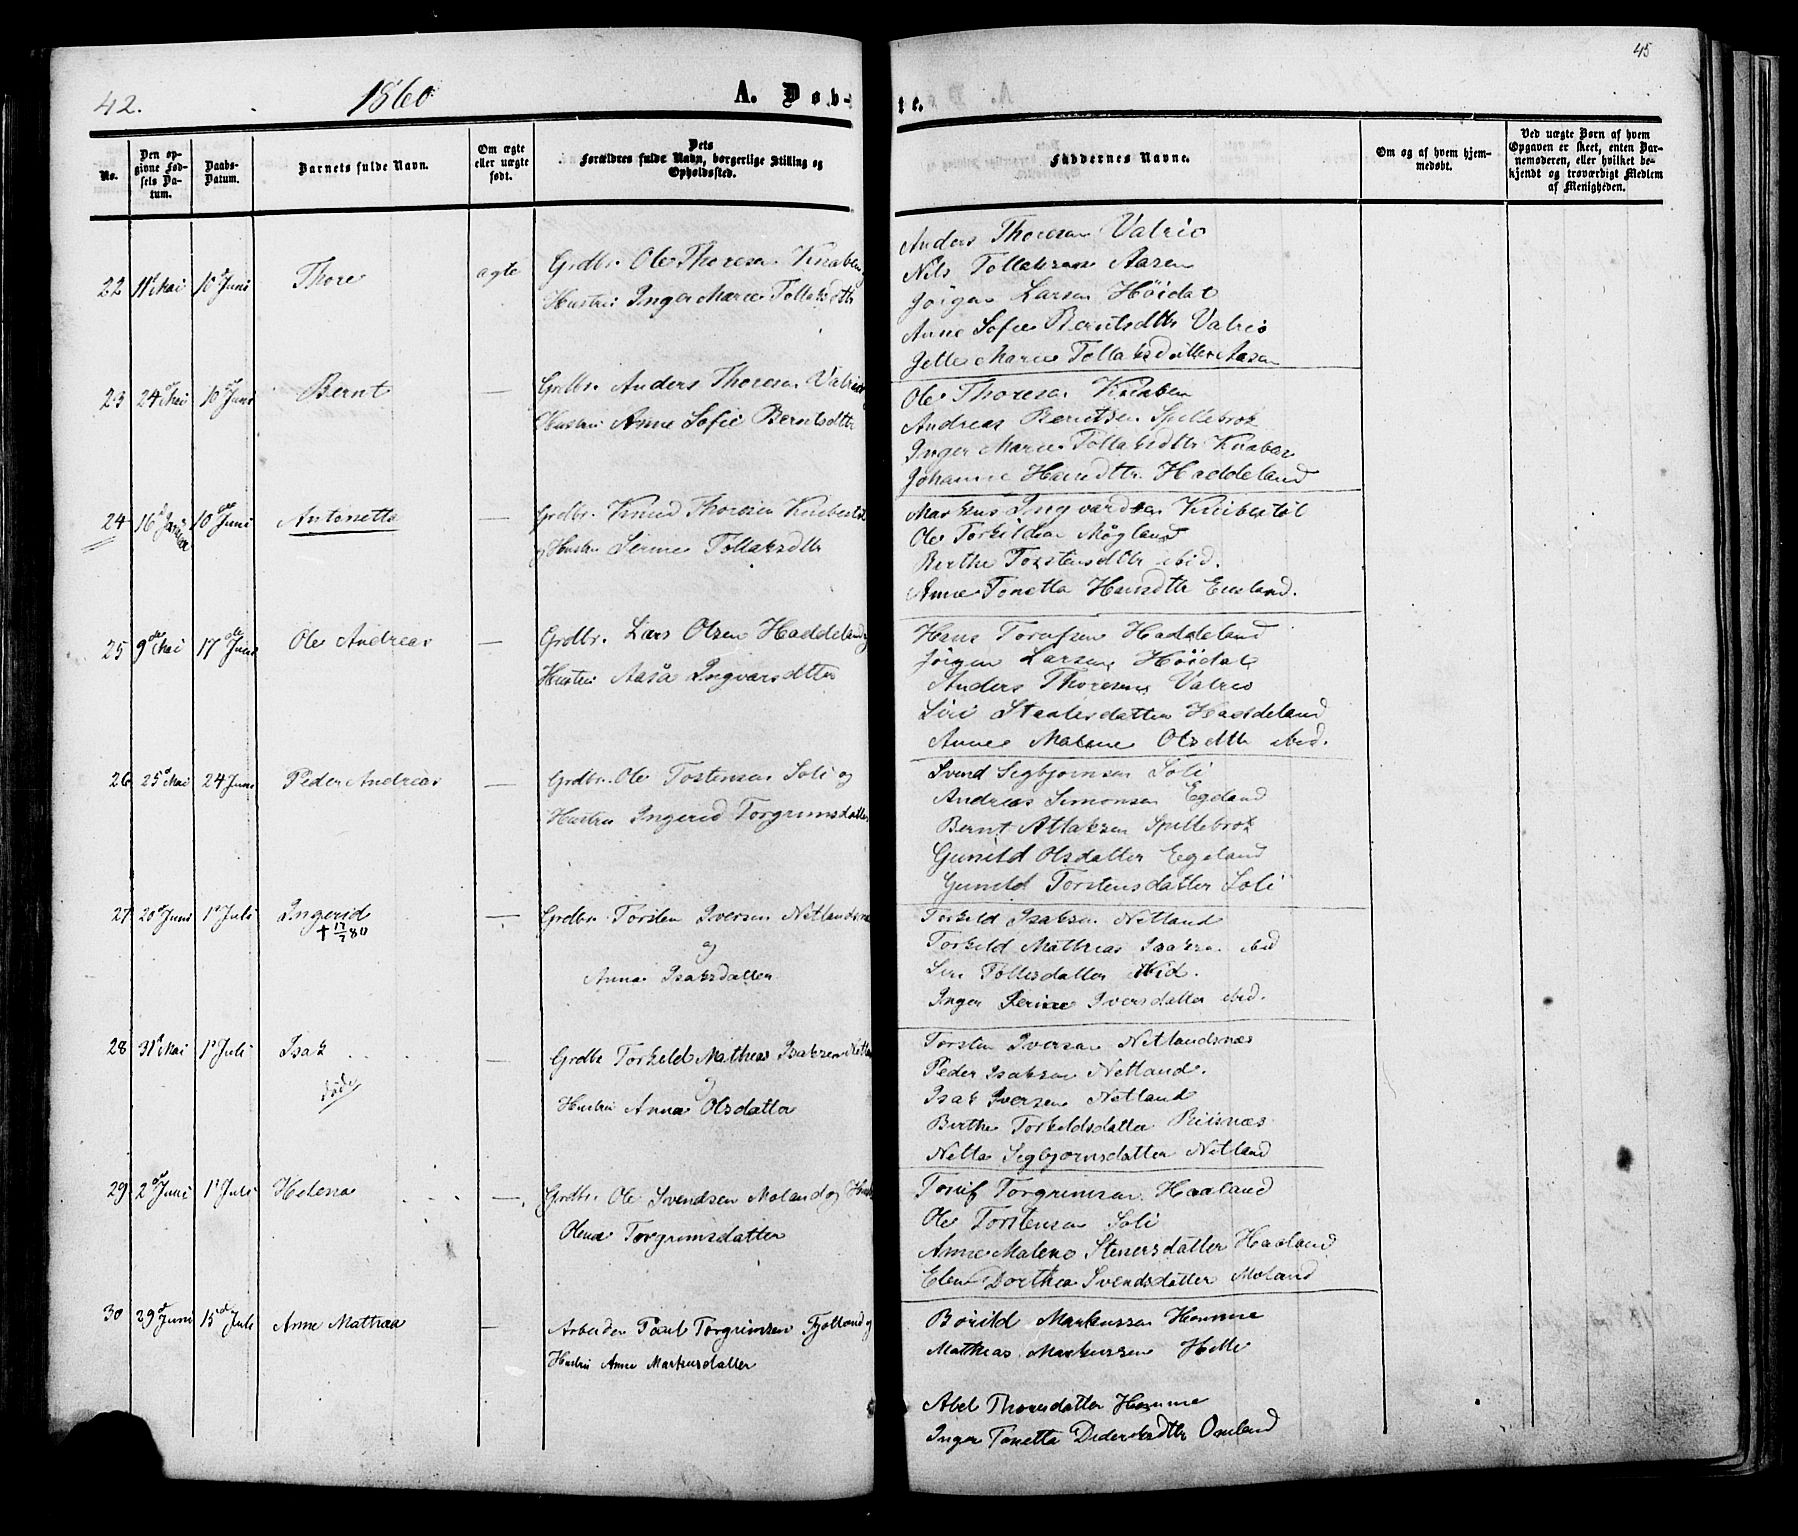 42.
1860
A. Døb-
te.
45
No.
Den op-
givne Fød-
sels Da-
tum.
Daabs-
Datum.
Barnets fulde Navn.
Om ægte
eller uægte
født.
Dets
Forældres fulde Navn, borgerlige Stilling og
Opholdssted.
Faddernes Navne.
Om og af hvem hjem-
medøbt.
Ved uægte Børn af hvem
Opgaven er skeet, enten Bar-
nemoderen, eller hvilket be-
kjendt og troværdigt Medlem
af Menigheden.
22 11t Mai 10d Juni Thore ægte Grdbr. Ole Thoresen Knaben
Hustru Inger Marie Tollaksdttr
Anders Thoresen Valrio
Nils Tollaksen Aasen
Jørgen Larsen Höidal
Anne Sofie Berntsdttr Valrio
Jette Marie Tollaksdatter Aasen
23 24de Mai 10de Juni Bernt — Grdbr. Anders Thoresen Valrio
Hustru Anne Sofie Berntsdttr
Ole Thoresen Knaben
Andreas Berntsen Spillebrok
Inger Marie Tollaksdtr Knaben
Johanne Hansdttr. Haddeland
24 16d 10de Juni Antonette — Grdbr. Knud Thoresen Knibertöl
og Hustru Serine Tollaksdttr
Markus Ingvardsen Knibertöl
Ole Torkildsen Mögland
Berthe Torstensdttr ibid.
Anne Tonetta Hansdttr Eieland.
25 9de Mai 17de Juni Ole Andreas — Grdbr. Lars Olsen Haddeland og
Hustru Aasa Ingvarsdtter
Hans Torufsen Haddeland
Jörgen Larsen Höidal
Anders Thoresen Valrio
Siri Staalesdatter Haddeland
Anne Malene Olsdttr ibid.
26 25d Mai 24 Juni Peder Andreas — Grdbr. Ole Tostensen Soli og
Hustru Ingerid Torgrimsdatter
Svend Segbjørnsen Soli
Andreas Simonsen Egeland
Bernt Atlaksen Spillebrok
Gunild Olsdatter Egeland
Gunild Torstensdatter Soli
27 20d Juni 1t Juli Ingerid — Grdbr. Torsten Iversen Netlandsnæs
† 17/7 80
og
Anna Isaksdatter
Torkild Isaksen Netland
Torkild Mathias Isaksen ibid
Siri Tollisdatter ibid.
Inger Serine Iversdatter ibid.
28 31t Mai 1t Juli Isak — Grdbr Torkeld Mathias Isaksen Netland
død
og
Hustru Anna Olsdatter
Torsten Iversen Netlandsnæs
Peder Isaksen Netland.
Isak Iversen Netland
Birthe Torkildsdatter Riisnæs
Netta Segbjørnsdatter Netland
29 2d Juni 1t Juli Helena —. Grdbr. Ole Svendsen Moland og Hust
Olena Torgrimsdatter
Tonif Torgrimsen Haaland
Ole Torstensen Soli
Anne Malene Stenersdatter Haaland
Elen Dorthea Svendsdatter Moland
30 29d Juni 15d Juli Anne Mathea — Arbeider Paul Torgrimsen Fjolland og
Hustru Anne Markusdatter
Boiild Markussen Homme
Mathias Markussen Helle
Abel Thoresdatter Homme
Inger Tonetta Didriksdttr Omland